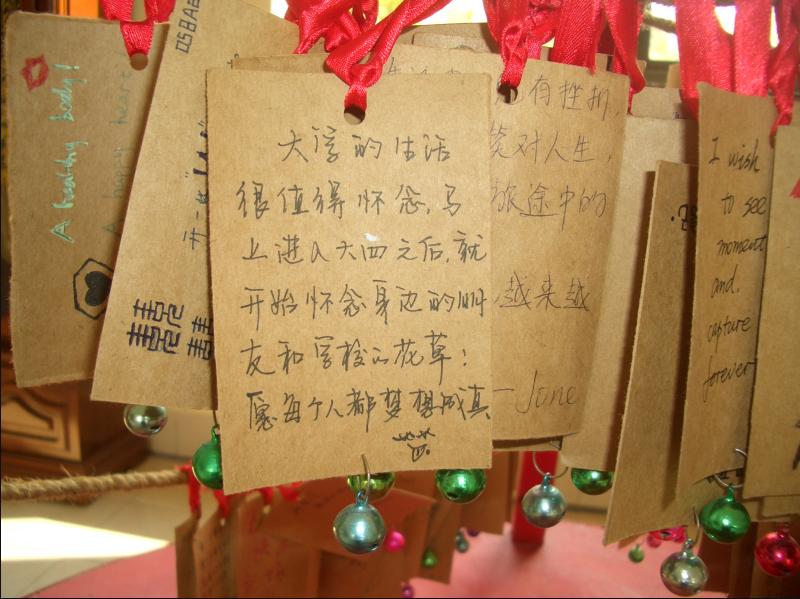 A healthy body!
A happy heart
囍
大学的生活
很值得怀念,马
上进入大四之后,就
开始怀念身边的朋
友和学校的花草!
愿每个人都梦想成真
有挫折,
笑对人生,
旅途中的
越来越
June
I wish
to see
moment
and
capture
forever